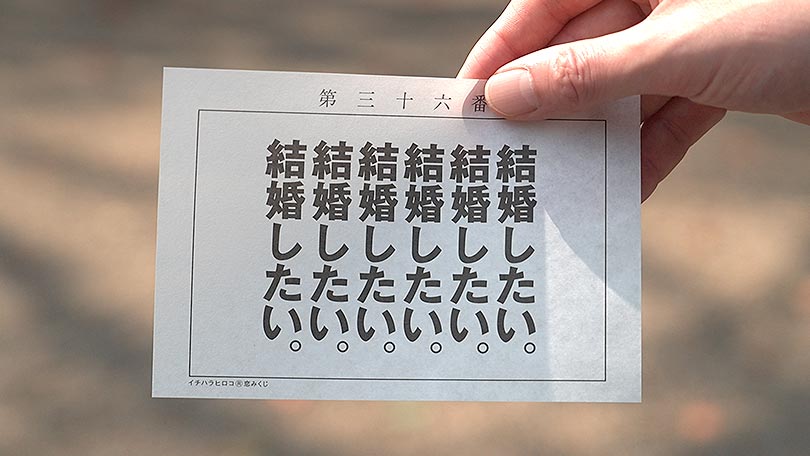 第三十六番
結婚したい。
結婚したい。
結婚したい。
結婚したい。
結婚したい。
結婚したい。
イチハラヒロコ㊞恋みくじ